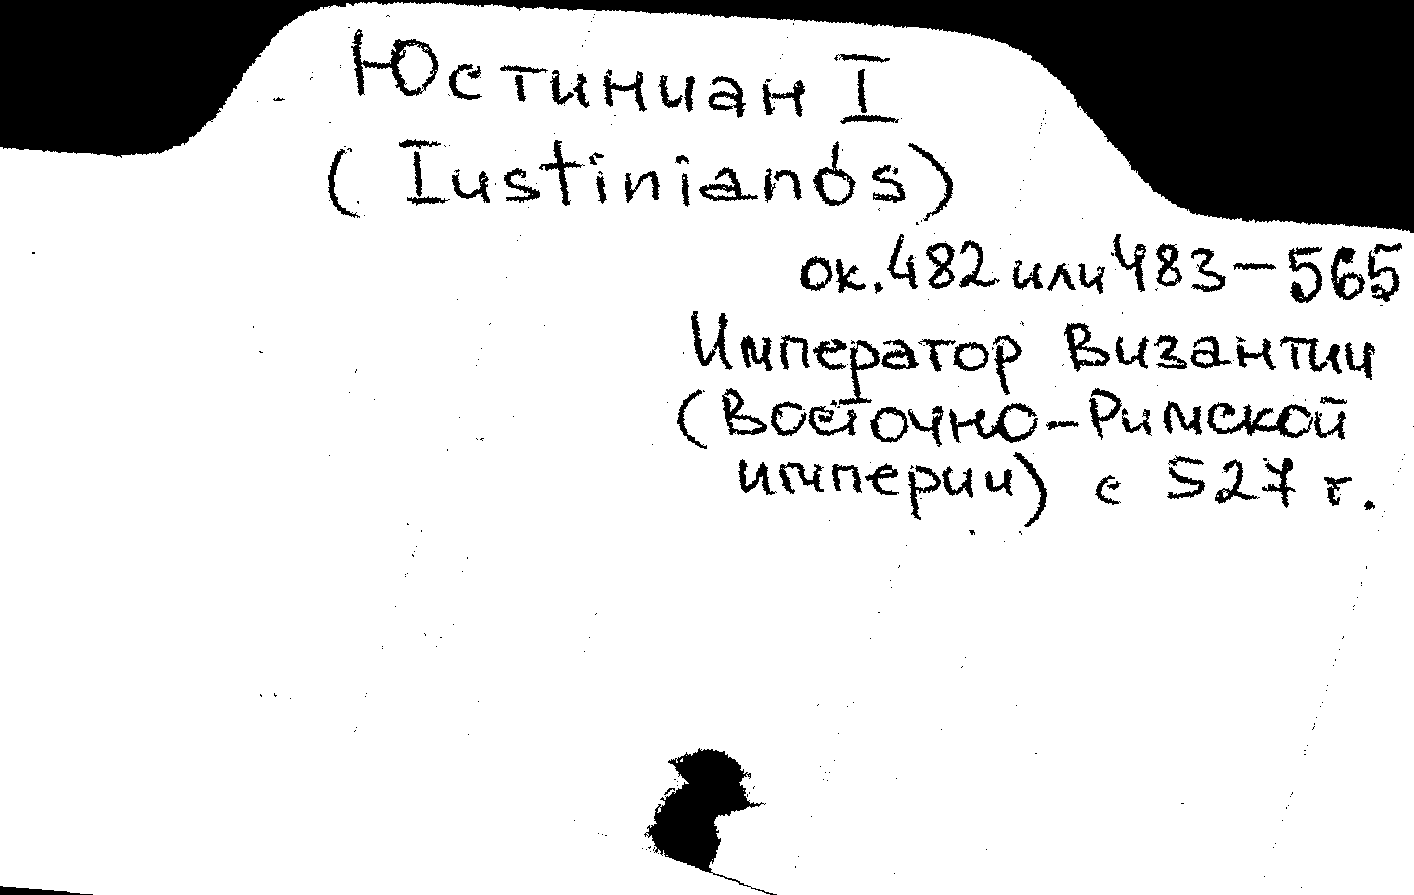 Юстиниан I
(Iustinianós)
ок. 482 или 483 – 565
Император Византии
(Восточно-Римской
империи) с 527 г.